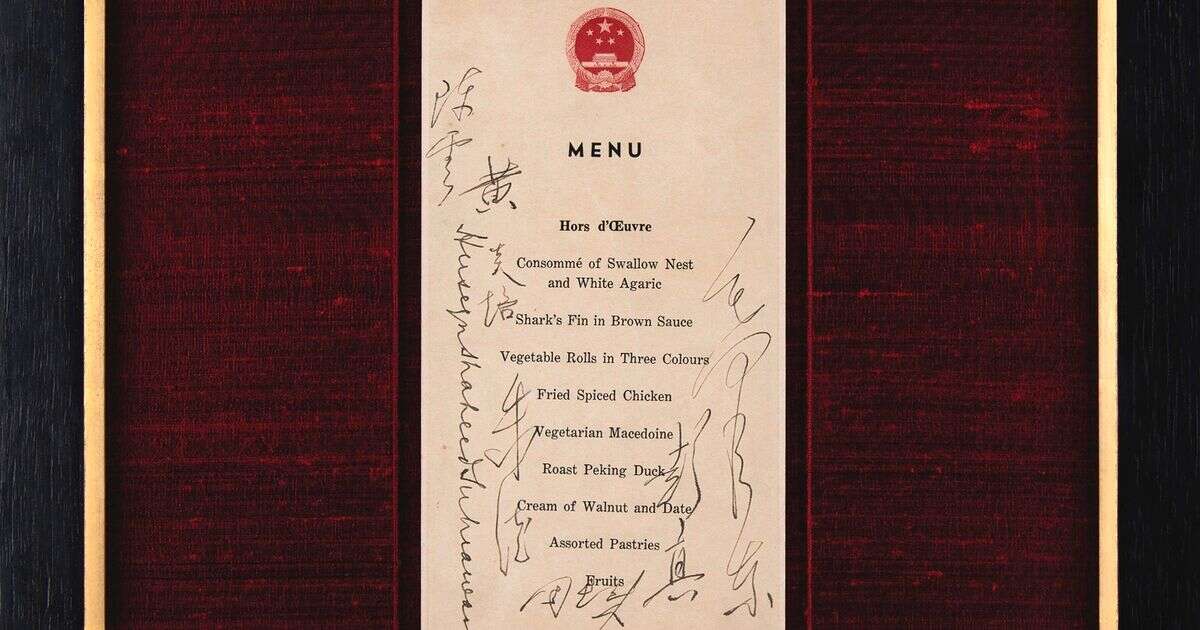 MENU
Hors d'Œuvre
Consommé of Swallow Nest
and White Agaric
Shark's Fin in Brown Sauce
Vegetable Rolls in Three Colours
Fried Spiced Chicken
Vegetarian Macedoine
Roast Peking Duck
Cream of Walnut and Date
Assorted Pastries
Fruits
黄炎培
Huseyn Shaheed
朱德
毛泽东